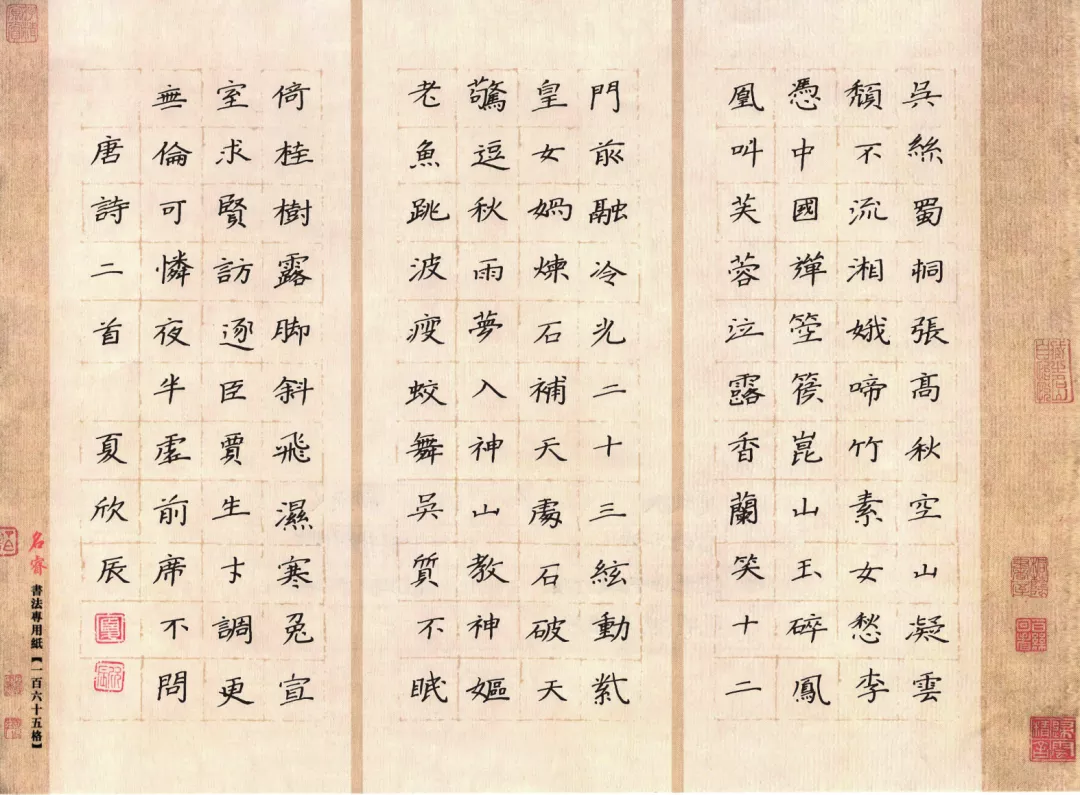 吳絲蜀桐張高秋空山凝雲
頹不流湘娥啼竹素女愁李
憑中國彈箜篌崑山玉碎鳳
凰叫芙蓉泣露香蘭笑十二
門歬融冷光二十三絃動紫
皇女媧煉石補天處石破天
驚逗秋雨夢入神山教神嫗
老魚跳波瘦蛟舞吳質不眠
倚桂樹露脚斜飛濕寒兔宣
室求賢訪逐臣賈生才調更
無倫可憐夜半虛前席不問
唐詩二首 夏欣辰
名睿 書法專用紙【一百六十五格】